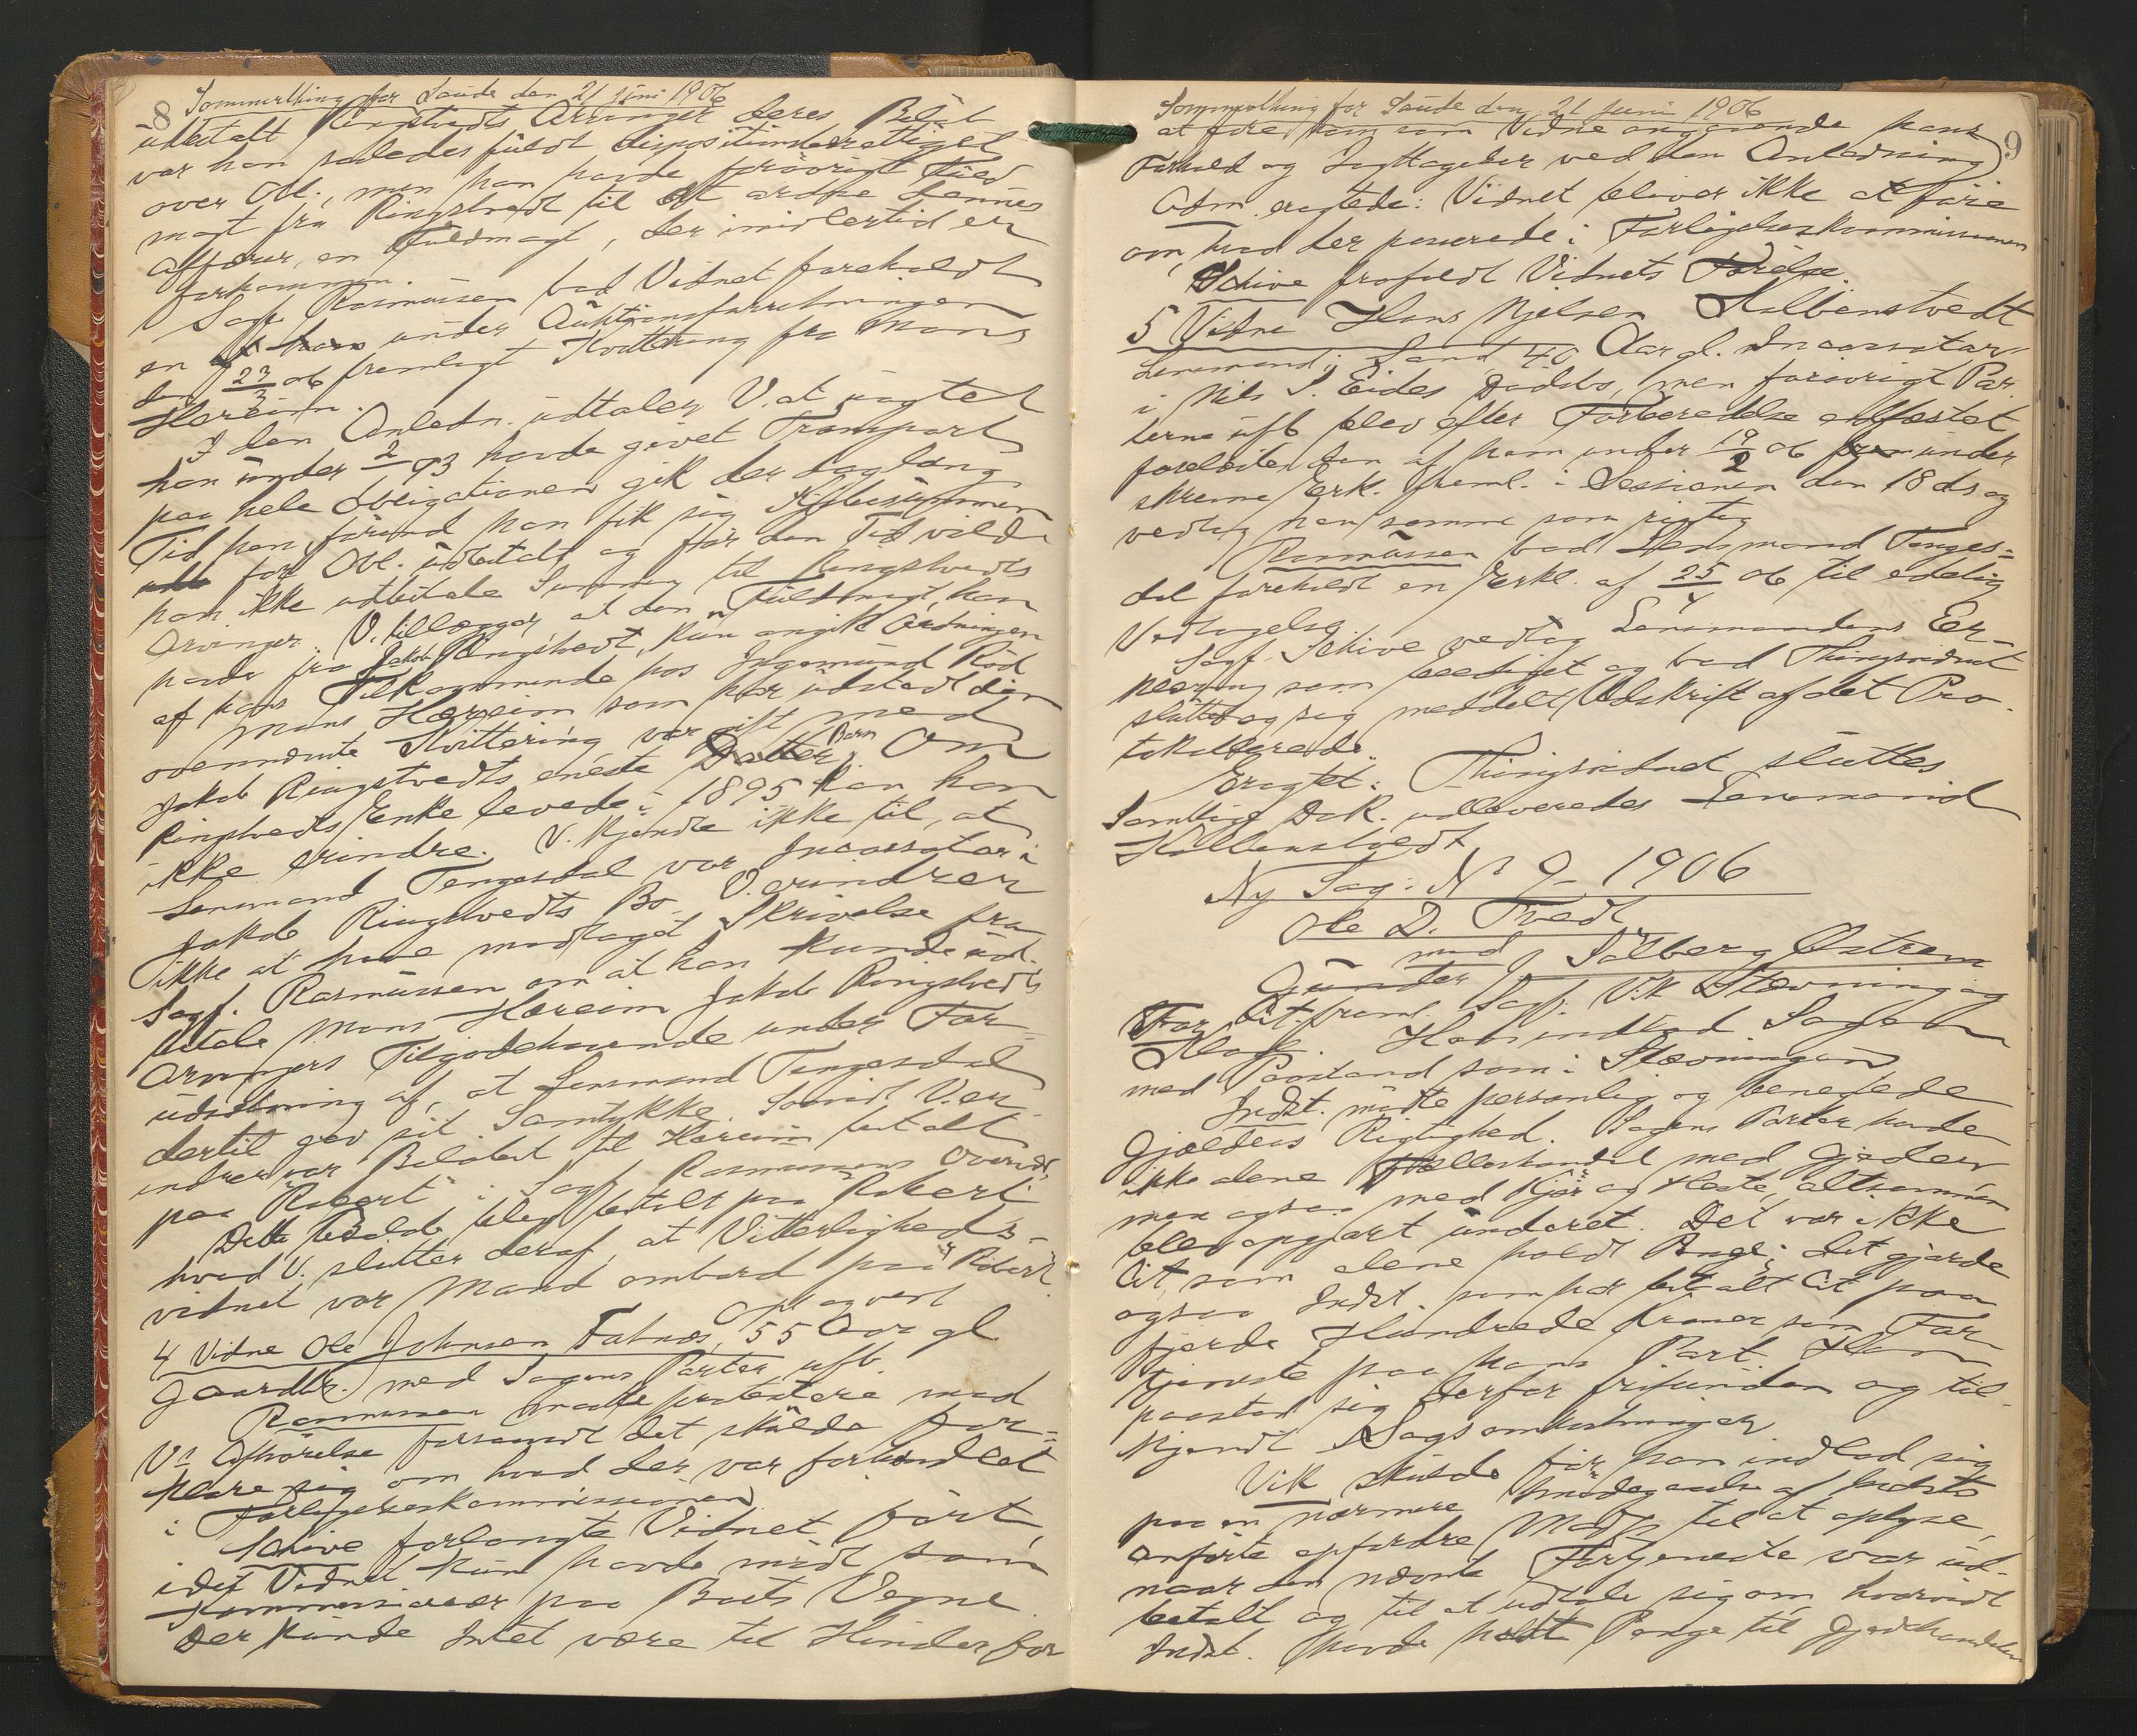 8 Sommerthing for Saude den 21 juni 1906
udbetalt Ringstvedts Arvinger deres Beløb
var han saaledes fuldt dispositionsberettiget
over Obl., men han havde forøvrigt Fuld
magt fra Ringstvedt til at ordne dennes
Affærer, en Fuldmagt, der imidlertid er
forkommen.
Sagf. Rasmussen bad Vidnet foreholdt
en af ham under Auktionsforretningen
den 23/3 06 fremlagt Kvittering fra Mons
Hereim.
I den Anledn. udtaler V. at uagtet
han under 2/ 93 havde givet Transport
paa hele Obligationen gik der dog lang
Tid hen, førend han fik sig Kjøbesummen
for Obl. udbetalt, og før den Tid vilde
han ikke udbetale Summen til Ringstvedts
Arvinger. V. tillægger at den Fuldmagt, han
havde fra Jakob Ringstvedt, kun angik Ordningen
af hans Tilkommende hos Ingemund Rød
Mons Hereim som har udstedt den
ovennævnte Kvittering var gift med
Jakob Ringstvedts eneste Datter Barn. Om
Ringstvedts Enke levede i 1895 kan han
ikke erindre. V. kjendte ikke til, at
Lensmand Tengesdal var Incassator i
Jakob Ringstvedts Bo. V. erindrer
ikke at have modtaget Skrivelse fra
Sagf. Rasmussen om at han kunde ud-
betale Mons Hereim Jakob Ringstvedts
Arvingers Tilgodehavende under For-
udsætning af, at Lensmand Tengesdal
dertil gav sit Samtykke. Saavidt V. er-
indrer var Beløbet til Hereim betalt
paa "Robert" i Sagf. Rasmussens Overv.
Dette Beløb blev betalt paa Robert
hvad V. slutter deraf, at Vitterligheds-
vidnet var Mand ombord paa "Robert".
4 Vidne Ole Johnsen Fatnes, 55 Aar gl
Gaardbr. med Sagens Parter uft.
Rasmussen maatte protestere mod
Vs Afhørelse forsaavidt det skulde for-
klare sig om hvad der var forhandlet
i Forligelseskommissionen.
Schive forlangte Vidnet ført,
idet Vidnet kun havde mødt som
Kommissionær paa Boets Vegne.
Der kunde Intet være til Hinder for
Sommerthing for Saude den 21 juni 1906
9
at føre ham som Vidne angaaende hans
Forhold og Iagttagelser ved den Anledning
Adm. eragtede: Vidnet bliver ikke at føre
om, hvad der passerede i Forligelseskommissionen
Schive frafaldt Vidnets Førelse.
5 Vidne Hans Njelsen Kolbenstvedt
Lensmand i Sand 40 Aar gl. Incassator
i Nils S. Eides Dødsbo, men forøvrigt Par-
terne uft blev efter Forberedelse edfæstet
forelæst den af ham under 19/2 06 under
skrevne Erk. freml. i Sessionen den 18 ds og
vedtog han samme som rigtig
Rasmussen bad Lensmand Tenges-
dal foreholdt en Erkl. af 25/4 06 til edelig
Vedtagelse.
Sagf. Schive vedtog Lensmandens Er-
klæring som beediget og bad Thingsvidnet
sluttet og sig meddelt Udskrift af det Pro-
tokollerede.
Eragtet: Thingsvidnet sluttes
Samtlige Dok. udleveredes Lensmand
Kolbenstvedt
Ny Sag: No 9 - 1906
Ole D. Tvedt
mod
Gunder J Solberg Østrem
For Cit. freml. Sagf. Vik Stævning og
Klage. Han indlod Sagen
med Paastand som i Stævningen
Indst. mødte personlig og benegtede
Gjældens Rigtighed. Sagens Parter havde
ikke alene Fælleshandel med Gjeder
men ogsaa med Kjør og Heste, altsammen
blev opgjort underet. Det var ikke
Cit, som alene holdt Penge; det gjorde
ogsaa Indst. som har betalt Cit paa
fjerde Hundrede Kroner som For-
tjeneste paa hans Part. Han
paastod sig derfor frifunden og til-
kjendt Sagsomkostninger
Vik skulde før han indlod sig
paa en nærmere Imødegaaelse af Indsts
anførte opfordre Modp. til at oplyse,
naar den nævnte Fortjeneste var ud-
betalt og til at udtale sig om hvorvidt
Indst. havde holdt Penge til Gjedehandelen